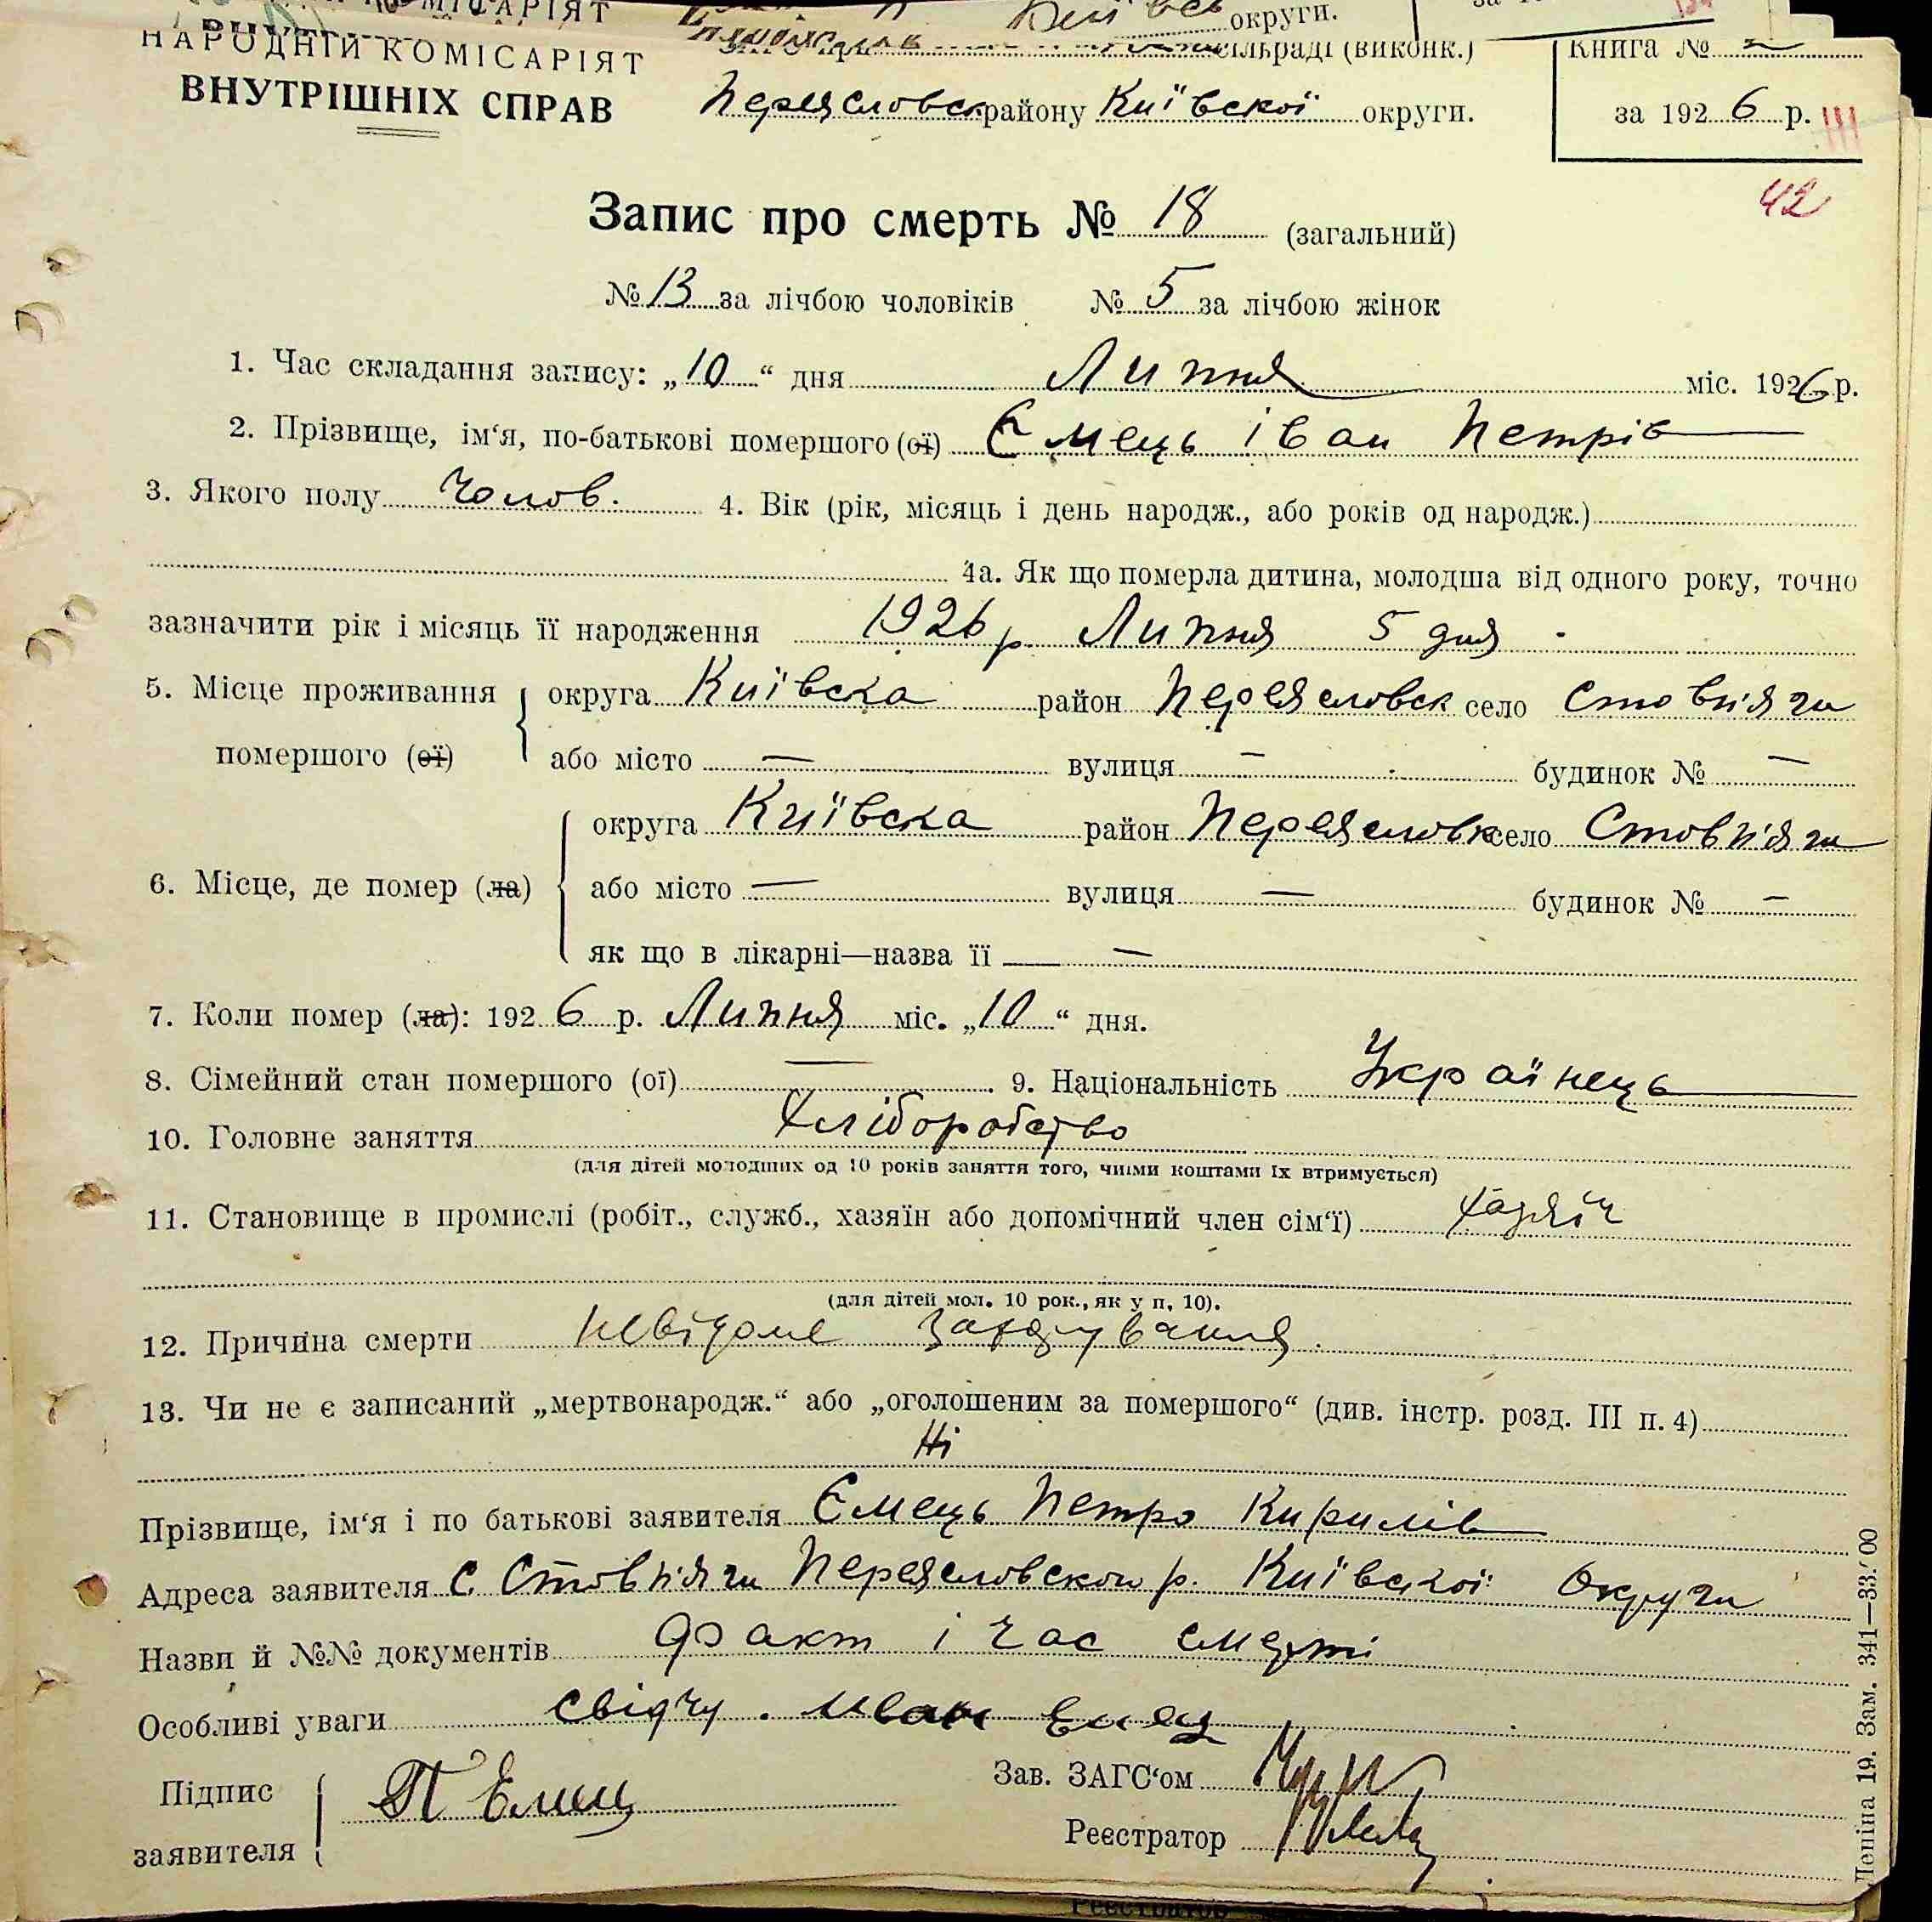 округи.
НАРОДНІЙ КОМІСАРІЯТ
ВНУТРІШНІХ СПРАВ
сільраді (виконк.)
Переяславськ району Київскої округи.
Книга №
за 1926 р.
III
42
Запис про смерть № 18 (загальний)
№ 13 за лічбою чоловіків № 5 за лічбою жінок
1. Час складання запису: „10“ дня Липня міс. 1926 р.
2. Прізвище, ім‘я, по-батькові помершого (ої) Ємець Іван Петрів
3. Якого полу Чолов. 4. Вік (рік, місяць і день народж., або років од народж.)
4а. Як що померла дитина, молодша від одного року, точно
зазначити рік і місяць її народження 1926 р. Липня 5 дня.
5. Місце проживання помершого (ої) округа Київска район Переяславск село Стовп'яги
або місто — вулиця — будинок № —
6. Місце, де помер (ла) округа Київска район Переяславск село Стовп'яги
або місто — вулиця — будинок № —
як що в лікарні—назва її —
7. Коли помер (ла): 1926 р. Липня міс. „10“ дня.
8. Сімейний стан помершого (ої) — 9. Національність Українець
10. Головне заняття Хліборобство
(для дітей молодших од 10 років заняття того, чиїми коштами їх втримується)
11. Становище в промислі (робіт., служб., хазяїн або допомічний член сім‘ї) хазяїн
(для дітей мол. 10 рок., як у п. 10).
12. Причина смерти невідоме захорування.
13. Чи не є записаний „мертвонародж.“ або „оголошеним за помершого“ (див. інстр. розд. III п. 4)
Ні
Прізвище, ім‘я і по батькові заявителя Ємець Петро Кирилів
Адреса заявителя С. Стовп'яги Переяславскои р. Київскої Округи
Назви й №№ документів Факт і час смерті
Особливі уваги свідчу. Иван Емец
Підпис заявителя П Емец
Зав. ЗАГС‘ом
Реєстратор
Леніна 19. Зам. 341—33.
Реєстратор